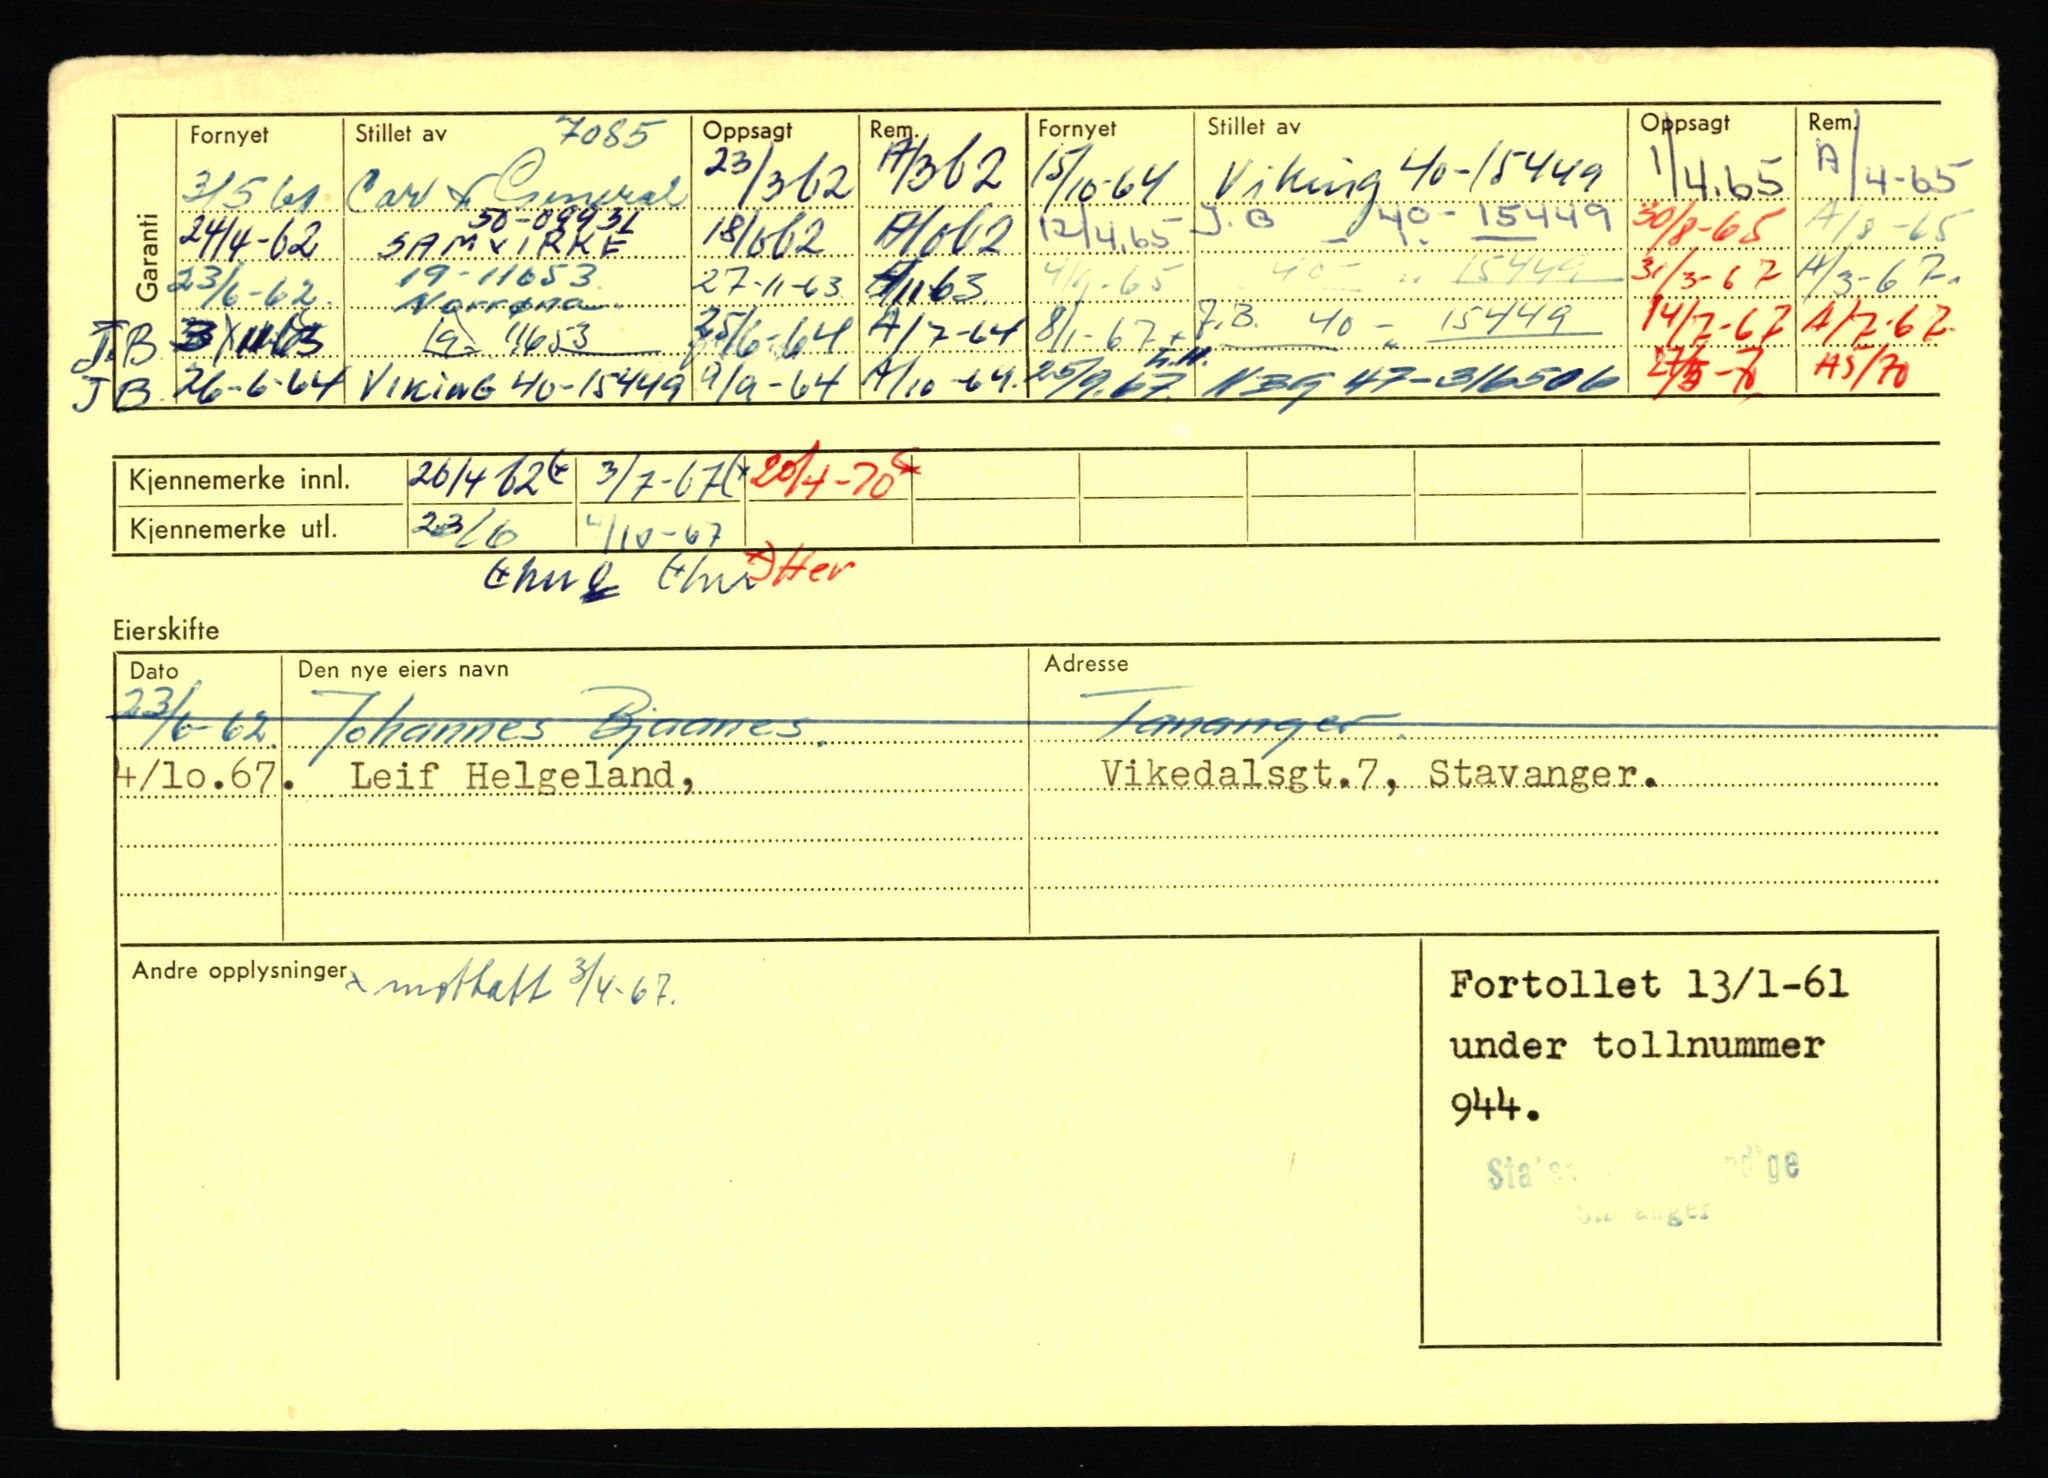 Garanti
Fornyet Stillet av 7085 Oppsagt Rem. Fornyet Stillet av Oppsagt Rem.
3/5 61 Car & General 23/3 62 A/3 62 15/10-64 Viking 40-15449 1/4.65 A/4-65
50-09931
24/4-62 SAMVIRKE 18/10 62 A/10 62 12/4.65 J.B - 40- 15449 30/8-65 A/8-65
23/6-62. 19-11653 Norrøna 27-11-63 A/11 63. 4/9-65 40- " 15449 31/3-67 A/3-67.
J.B 19- 11653 25/6-64 A/7-64 8/1-67 x J.B. 40 - " 15449 14/7-67 A/7-67.
J B. 26-6-64 VIKING 40-15449 9/9-64 A/10-64. 25/9.67. NBG 47-316506 A5/70
Kjennemerke innl. 26/4 62 3/7-67 20/4-70
Kjennemerke utl. 23/6 4/10-67
Eierskifte
Dato Den nye eiers navn Adresse
23/6-62. Johannes Bjaanes. Tananger.
4/lo.67. Leif Helgeland, Vikedalsgt.7, Stavanger.
Andre opplysninger x mottatt 3/4-67.
Fortollet 13/1-61
under tollnummer
944.
Stavanger